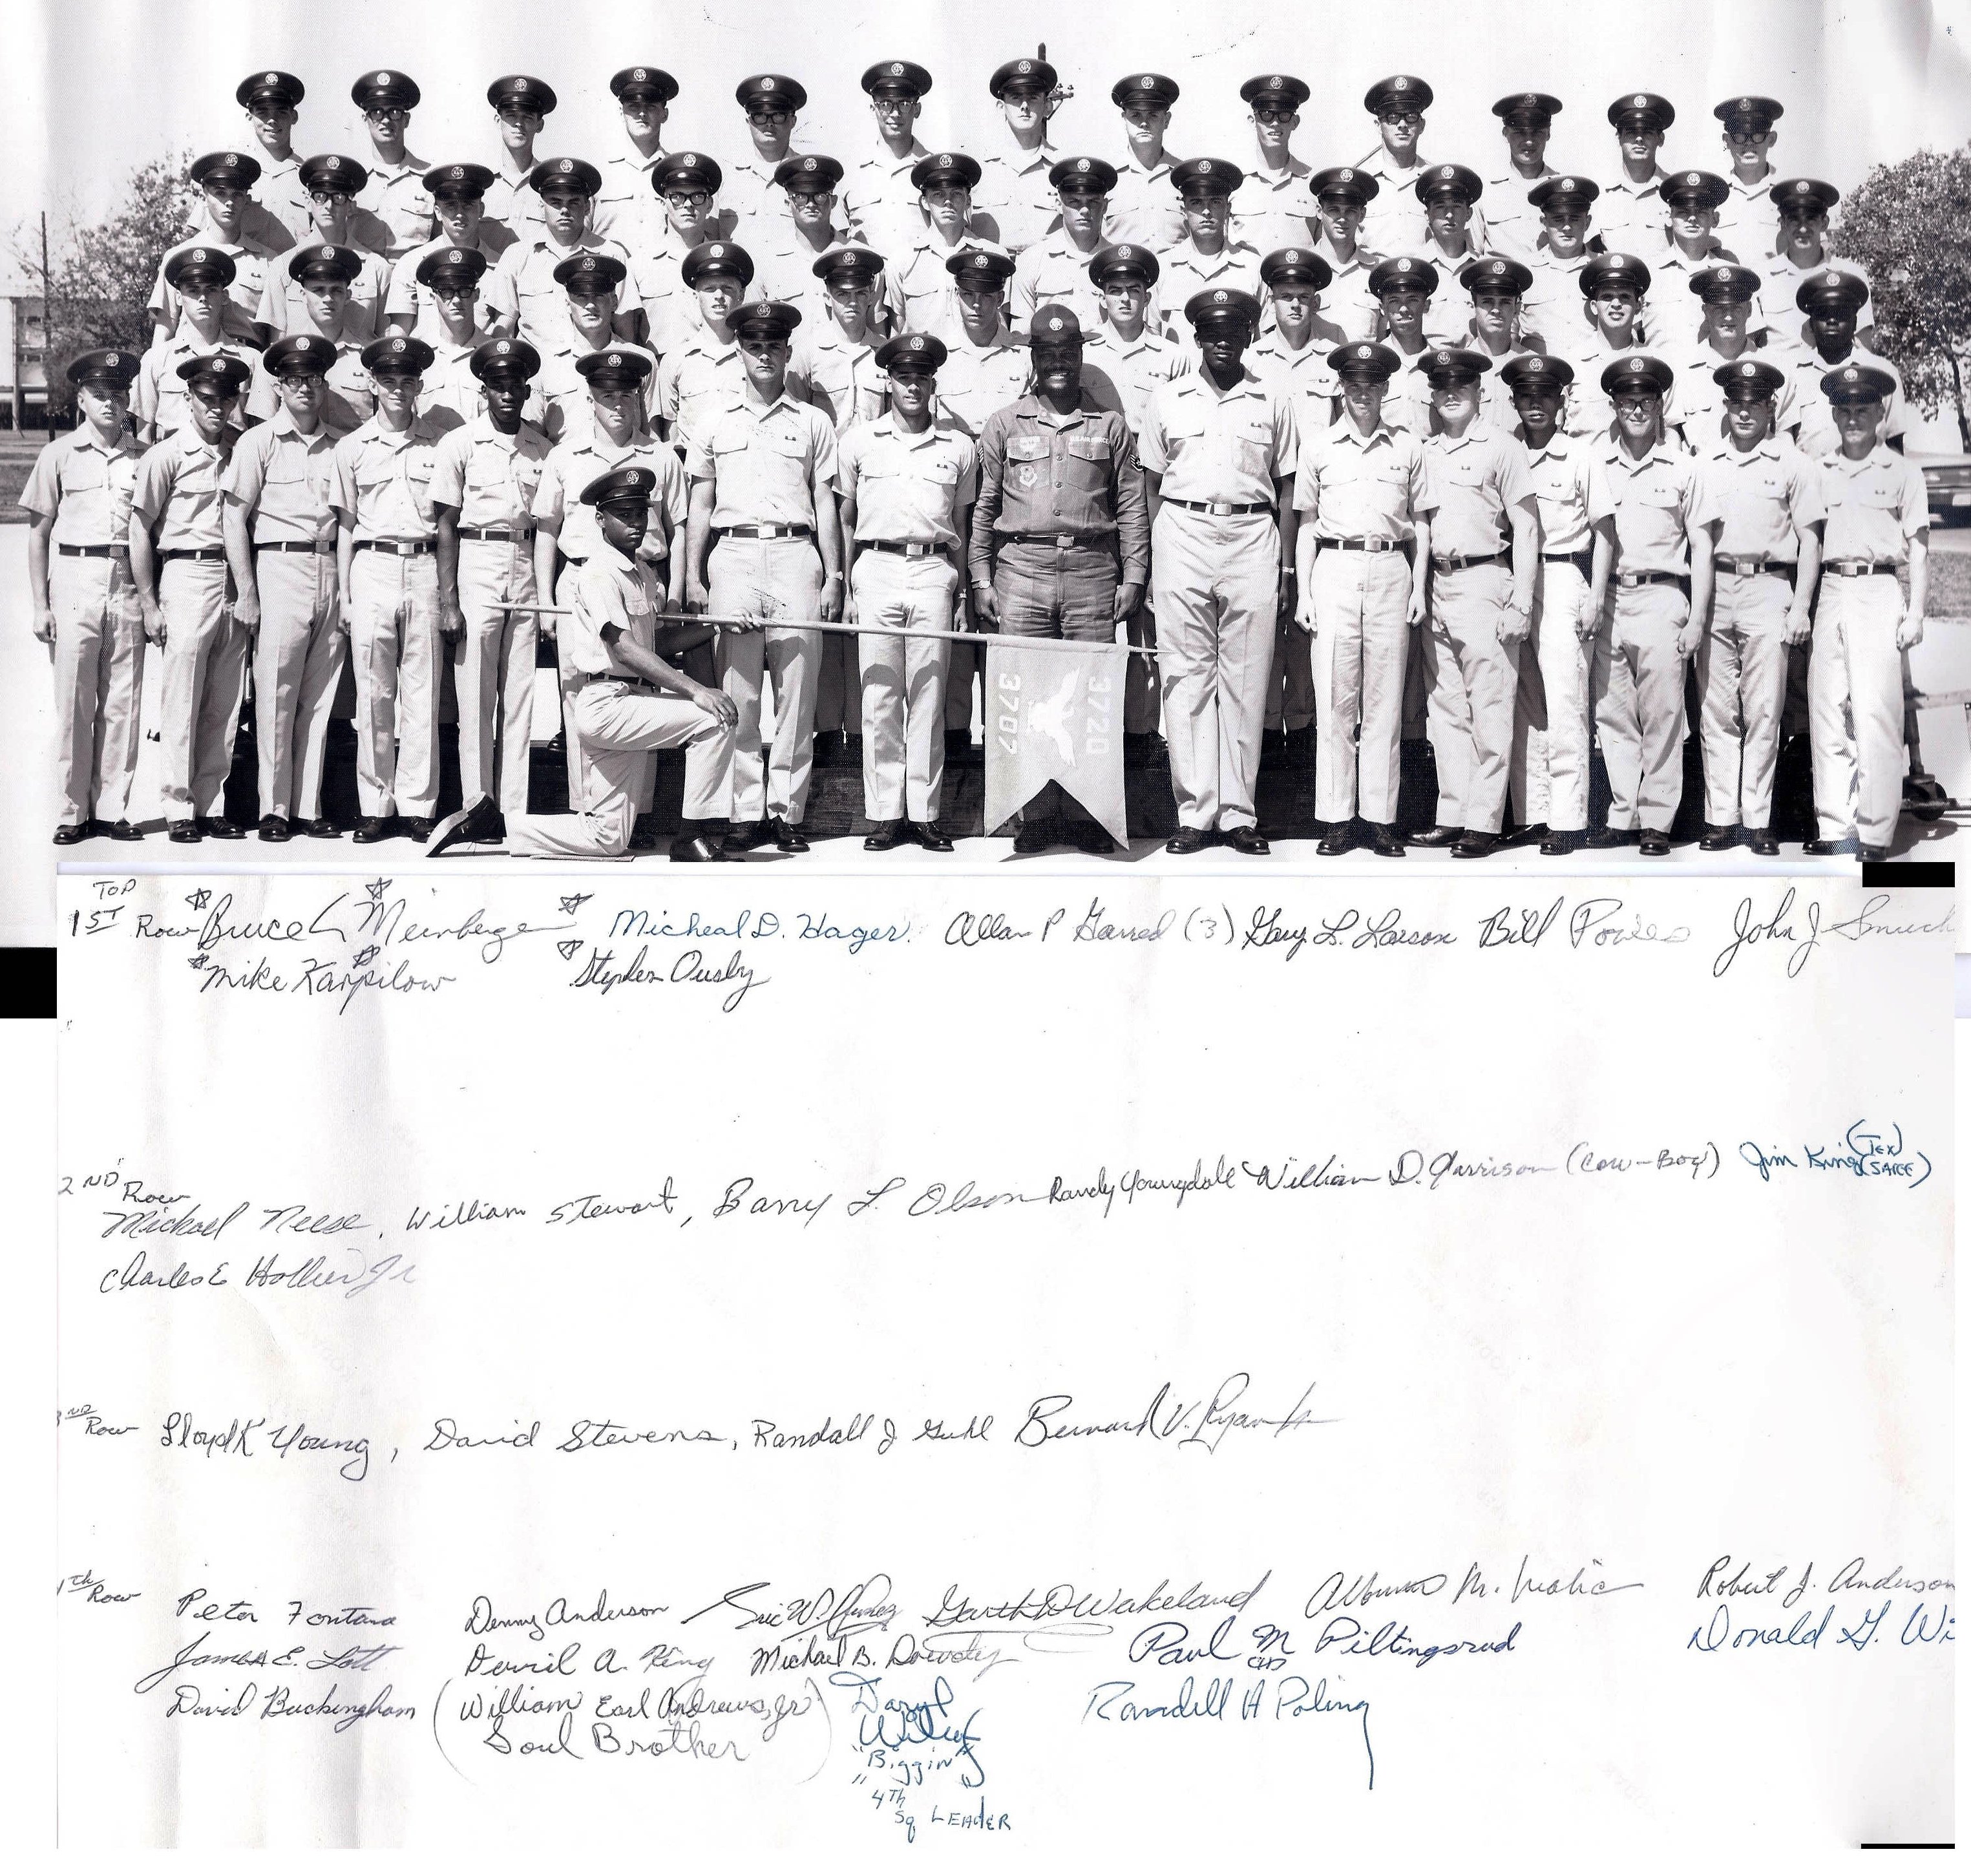 U.S. AIR FORCE
3720
3707
TOP
1ST Row Bruce L Meinberge Micheal D. Hager. Allan P Garred (3) Gary L. Larson Bill Powles John J Smuck
Mike Karpilow Stephen Ousby
2ND Row
(TEX)
Michael Neese, William Stewart, Barry L. Olson Randy Youngdale William D. Garrison (COW-BOY) Jim King (SARGE)
Charles E Hollier Jr
Row Lloyd K Young, David Stevens, Randall J Guhl Bernard V. Ryan Jr
th Row Peter Fontana Denny Anderson Eric W. Garth D Wakeland M. Robert J. Anderson
James E. Lott Derril A. King Michael B. Dowdy Paul M Piltingsrud Donald G. Wi
David Buckingham (William Earl Andrews, Jr) Daryl Randell A Poling
Soul Brother
"Biggin"
4TH
Sq LEADER